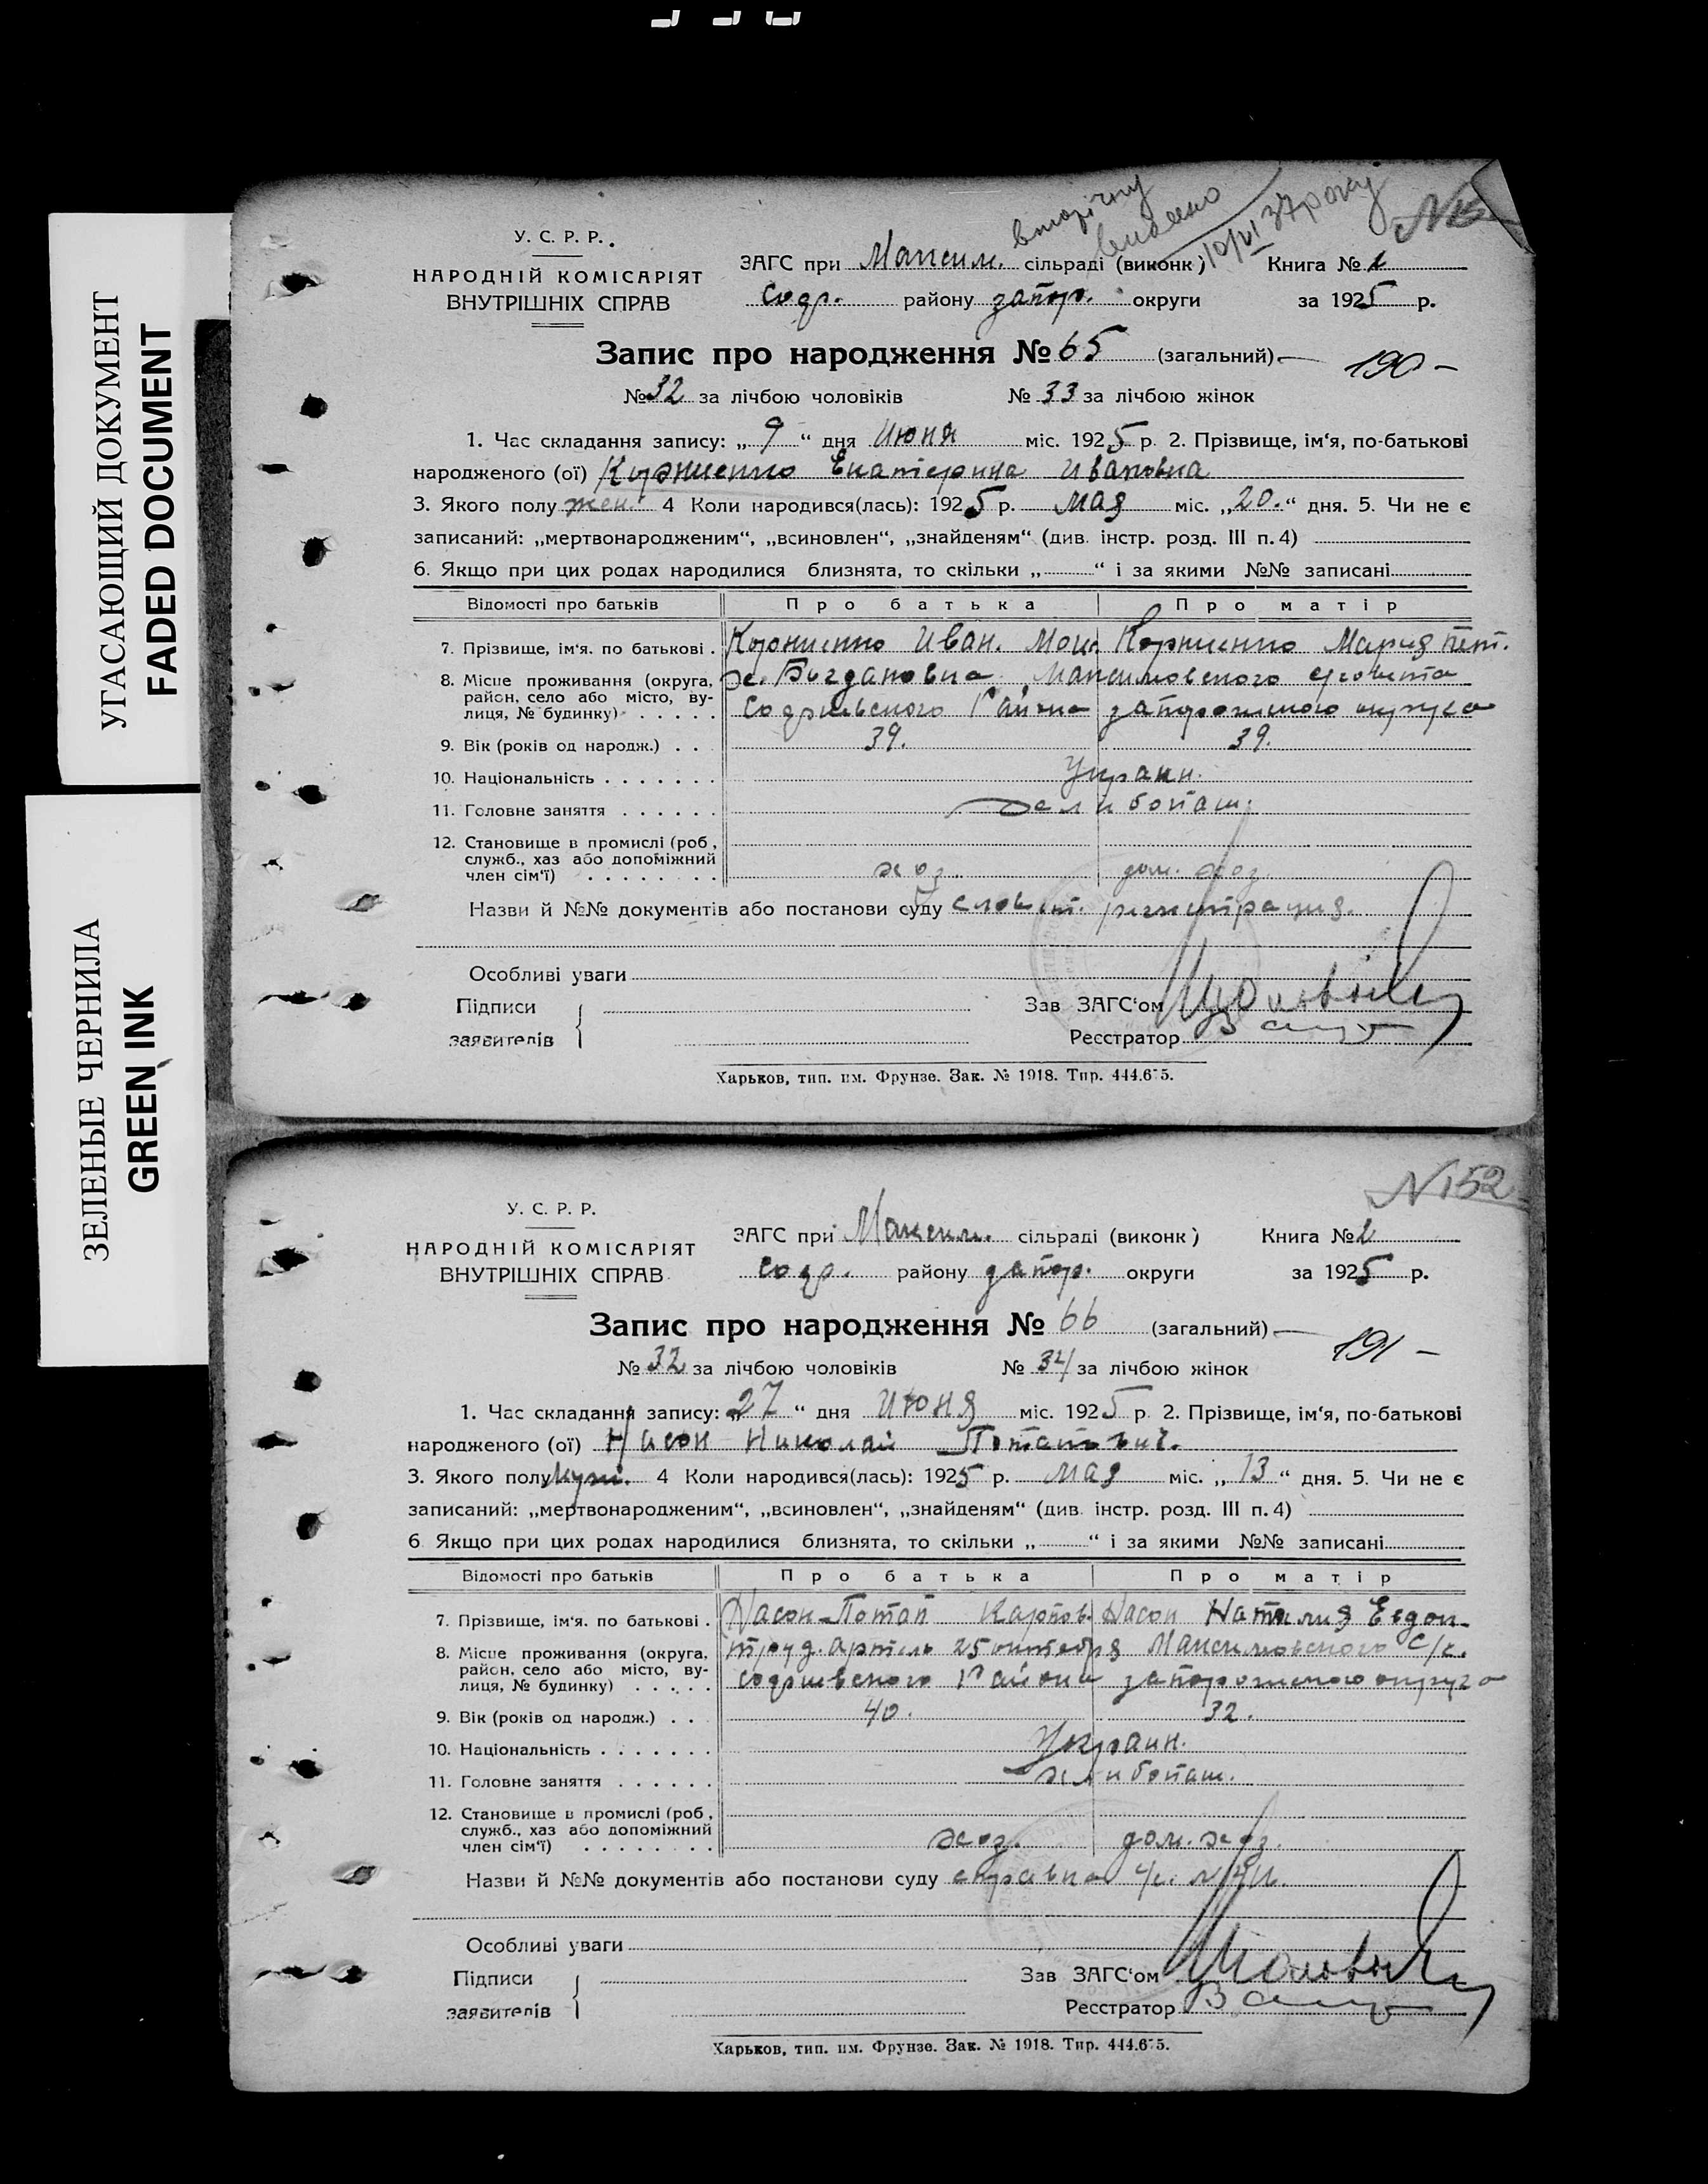 УГАСАЮЩИЙ ДОКУМЕНТ
FADED DOCUMENT
ЗЕЛЕНЫЕ ЧЕРНИЛА
GREEN INK
вторічну
видано
10/VI 37 року
У. С. Р. Р.
НАРОДНІЙ КОМІСАРІЯТ
ВНУТРІШНІХ СПРАВ
ЗАГС при Максим. сільраді (виконк) Книга №
району запор. округи за 1925 р.
Запис про народження № 65 (загальний) 190 –
№ 32 за лічбою чоловіків № 33 за лічбою жінок
1. Час складання запису: „ 9 “ дня Июня міс. 1925 р. 2. Прізвище, ім‘я, по-батькові
народженого (ої) Корниенко Екатерина Ивановна
3. Якого полу жен. 4 Коли народився(лась): 1925 р. Мая міс. „20.“ дня. 5. Чи не є
записаний: „мертвонародженим“, „всиновлен“, „знайденям“ (див. інстр. розд. III п. 4)
6. Якщо при цих родах народилися близнята, то скільки „ “ і за якими №№ записані
Відомості про батьків Про батька Про матір
7. Прізвище, ім‘я. по батькові . Корниенко Иван. Корниенко Мария Пет.
8. Місце проживання (округа, район, село або місто, вулиця, № будинку) х. Богдановка Максимовского
Района запорожского округа
9. Вік (років од народж.) . . 39. 39.
10. Національність . . . . . . . Украин.
11. Головне заняття . . . . . .
12. Становище в промислі (роб, служб., хаз або допоміжний член сім‘ї) . . . . . . . . хоз. дом. хоз.
Назви й №№ документів або постанови суду словест. регистрация.
Особливі уваги
Підписи Зав ЗАГС‘ом
заявителів Реєстратор
Харьков, тип. им. Фрунзе. Зак. № 1918. Тир. 444.675.
N 152
У. С. Р. Р.
НАРОДНІЙ КОМІСАРІЯТ
ВНУТРІШНІХ СПРАВ
ЗАГС при Максим. сільраді (виконк) Книга №
району запор. округи за 1925 р.
Запис про народження № 66 (загальний) 191 –
№ 32 за лічбою чоловіків № 34 за лічбою жінок
1. Час складання запису: „27“ дня Июня міс. 1925 р. 2. Прізвище, ім‘я, по-батькові
народженого (ої) Насон Николай Потапович.
3. Якого полу муж. 4 Коли народився(лась): 1925 р. Мая міс. „ 13 “ дня. 5. Чи не є
записаний: „мертвонародженим“, „всиновлен“, „знайденям“ (див. інстр. розд. III п. 4)
6 Якщо при цих родах народилися близнята, то скільки „ “ і за якими №№ записані
Відомості про батьків Про батька Про матір
7. Прізвище, ім‘я. по батькові . Насон Потап Карпов. Насон Наталия Евдок.
8. Місце проживання (округа, район, село або місто, вулиця, № будинку) . . . . . труд. артель 25 октября Максимовского с/с.
Района запорожского округа
9. Вік (років од народж.) . . . 40. 32.
10. Національність . . . . . . . Украин.
11. Головне заняття . . . . . .
12. Становище в промислі (роб, служб., хаз або допоміжний член сім‘ї) . . . . . . . . хоз. дом. хоз.
Назви й №№ документів або постанови суду справка
Особливі уваги
Підписи Зав ЗАГС‘ом
заявителів Реєстратор
Харьков, тип. им. Фрунзе. Зак. № 1918. Тир. 444.675.